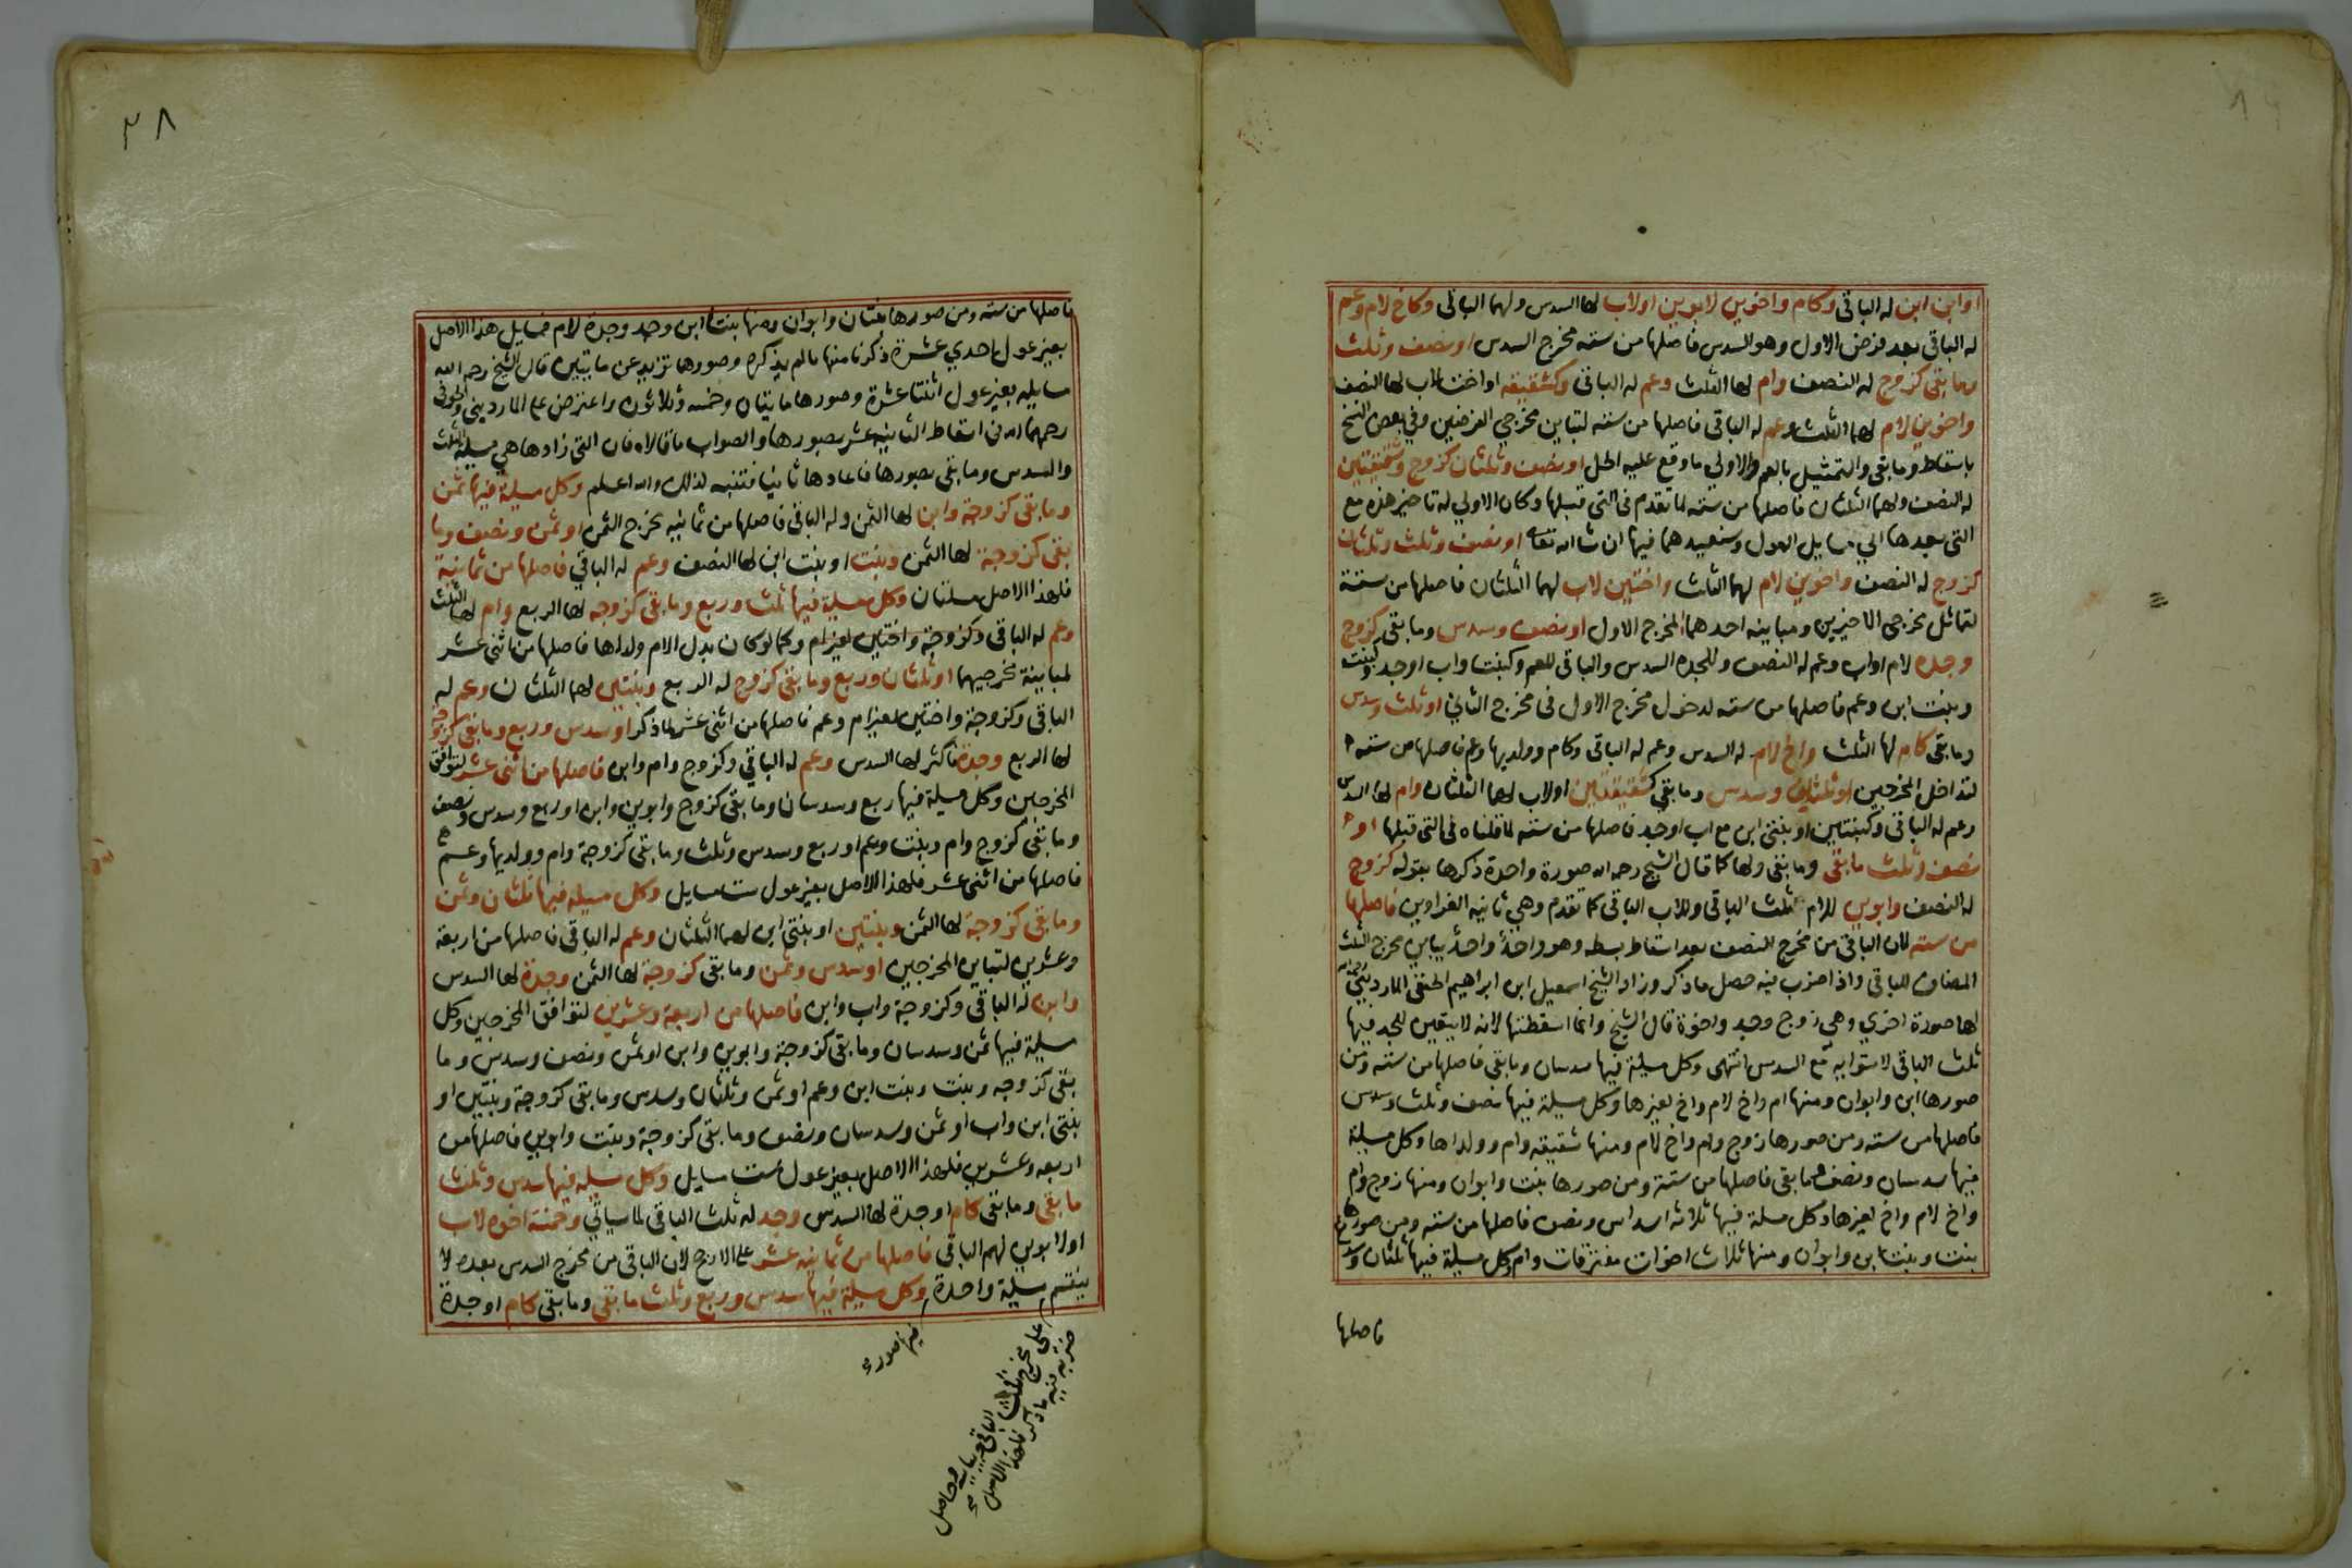 او ابن ابن له الباقى وكام واخوين لابوين اولاب لها السدس ولهما الباقى وكاخ لام وعم
له الباقى بعد فرض الاول وهو السدس فاصلها من سته مخرج السدس او نصف وثلث
وما بقى كزوج له النصف وام لها الثلث وعم له الباقى وكشقيقه او اخت لاب لها النصف
واخوين لام لهما الثلث وعم له الباقى فاصلها من سته لتباين مخرجي الفرضين وفي بعض النسخ
باسقاط وما بقى والتمثيل بالعم والاولى ما وقع عليه الحل او نصف وثلثان كزوج وشقيقتين
له النصف ولهما الثلثان فاصلها من سته لما تقدم فى التى قبلها وكان الاولي له تاخير هذه مع
التى بعدها الي مسايل العول وسنعيدهما فيها ان شا الله تعالى او نصف وثلث وثلثان
كزوج له النصف واخوين لام لهما الثلث واختين لاب لهما الثلثان فاصلها من ستة
لتماثل مخرجى الاخيرين ومباينه احدهما المخرج الاول او نصف وسدس وما بقى كزوج
وجده لام اولاب وعم له النصف وللجده السدس والباقى للعم وكبنت واب اوجد وكبنت
وبنت ابن وعم فاصلها من سته لدخول مخرج الاول فى مخرج الثانى او ثلث وسدس
وما بقى كام لها الثلث واخ لام له السدس وعم له الباقى وكام وولديها وعم فاصلها من سته
لتداخل المخرجين او ثلثان وسدس وما بقى كشقيقتين اولاب لهما الثلثان وام لها السدس
وعم له الباقى وكبنتين او بنتى ابن مع اب اوجد فاصلها من سته لما قلناه فى التى قبلها او
نصف وثلث ما بقى وما بقى ولها كما قال الشيخ رحمه الله صورة واحدة ذكرها بقوله كزوج
له النصف وابوين للام ثلث الباقى وللاب الباقى كما تقدم وهي ثانيه الغراوين فاصلها
من سته لان الباقى من مخرج النصف بعد اسقاط بسطه وهو واحد واحد يباين مخرج الثلث
المضاف للباقى واذا ضرب فيه حصل ما ذكر وزاد الشيخ اسمعيل ابن ابراهيم الحنفى الماردينى
لها صورة اخري وهي زوج وجد واخوة قال الشيخ وانما اسقطتها لانه لا يتعين للجد فيها
ثلث الباقى لاستوايه مع السدس انتهى وكل مسيلة فيها سدسان وما بقى فاصلها من سته ومن
صورها ابن وابوان ومنها ام واخ لام واخ لغيرها وكل مسيلة فيها نصف وثلث وسدس
فاصلها من سته ومن صورها زوج وام واخ لام ومنها شقيقه وام وولداها وكل مسيلة
فيها سدسان ونصف وما بقى فاصلها من ستة ومن صورها بنت وابوان ومنها زوج وام
واخ لام واخ لغيرها وكل مسلة فيها ثلاثه اسداس ونصف فاصلها من سته ومن صورها
بنت وبنت ابن وابوان ومنها ثلاث اخوات مفترقات وام وكل مسيلة فيها ثلثان وسد
فاصلها
٣٨
فاصلها من سته ومن صورها بنتان وابوان ومنها بنتا ابن وجد وجدة لام فمسايل هذا الاصل
بغير عول احدي عشرة ذكرنا منها مالم يذكره وصورها تزيد عن مايتين قال الشيخ رحمه الله
مسايله بغير عول اثنتا عشرة وصورها مايتان وخمسه وثلاثون واعترض على الماردينى والحوفى
رحمهما الله فى اسقاط الثانيه عشر بصورها والصواب ما قالاه فان التى زادها هي مسيلة الثلث
والسدس وما بقى بصورها فاعادها ثانيا فتنبه لذلك والله اعلم وكل مسيلة فيها ثمن
وما بقى كزوجة وابن لها الثمن وله الباقى فاصلها من ثمانيه مخرج الثمن او ثمن ونصف وما
بقى كزوجة لها الثمن وبنت او بنت ابن لها النصف وعم له الباقي فاصلها من ثمانية
فلهذا الاصل مسلتان وكل مسيلة فيها ثلث وربع وما بقى كزوجه لها الربع وام لها الثلث
وعم له الباقى وكزوجة واختين لغير ام وكما لو كان بدل الام ولداها فاصلها من اثنى عشر
لمباينة مخرجيهما او ثلثان وربع وما بقى كزوج له الربع وبنتين لهما الثلثان وعم له
الباقى وكزوجة واختين لغير ام وعم فاصلها من اثنى عشر لما ذكر او سدس وربع وما بقى كزوجة
لها الربع وجدة فاكثر لها السدس وعم له الباقي وكزوج وام وابن فاصلها من اثنى عشر لتوافق
المخرجين وكل مسيلة فيها ربع وسدسان وما بقى كزوج وابوين وابن او ربع وسدس ونصف
وما بقى كزوج وام وبنت وعم او ربع وسدس وثلث وما بقى كزوجة وام وولديها وعم
فاصلها من اثنى عشر فلهذا الاصل بغير عول ست مسايل وكل مسيله فيها ثلثان وثمن
وما بقى كزوجة لها الثمن وبنتين او بنتى ابن لهما الثلثان وعم له الباقى فاصلها من اربعة
وعشرين لتباين المخرجين او سدس وثمن وما بقى كزوجة لها الثمن وجدة لها السدس
وابن له الباقى وكزوجة واب وابن فاصلها من اربعة وعشرين لتوافق المخرجين وكل
مسيلة فيها ثمن وسدسان وما بقى كزوجة وابوين وابن او ثمن ونصف وسدس وما
بقى كزوجه وبنت وبنت ابن وعم او ثمن وثلثان وسدس وما بقى كزوجة وبنتين او
بنتى ابن واب او ثمن وسدسان ونصف وما بقى كزوجة وبنت وابوين فاصلها من
اربعه وعشرين فلهذا الاصل بغير عول ست مسايل وكل مسيله فيها سدس وثلث
ما بقى وما بقى كام او جدة لها السدس وجد له ثلث الباقى لما سياتي وخمسة اخوه لاب
اولابوين لهم الباقى فاصلها من ثمانيه عشر على الارجح لان الباقى من مخرج السدس بعده لا
ينقسم مسيلة واحدة وكل مسيلة فيها سدس وربع وثلث ما بقى وما بقى كام او جدة
فيها صوره
على مخرج ثلث الباقى ويباينه وحاصل
ضربه فيه ما ذكر فلهذا الاصل